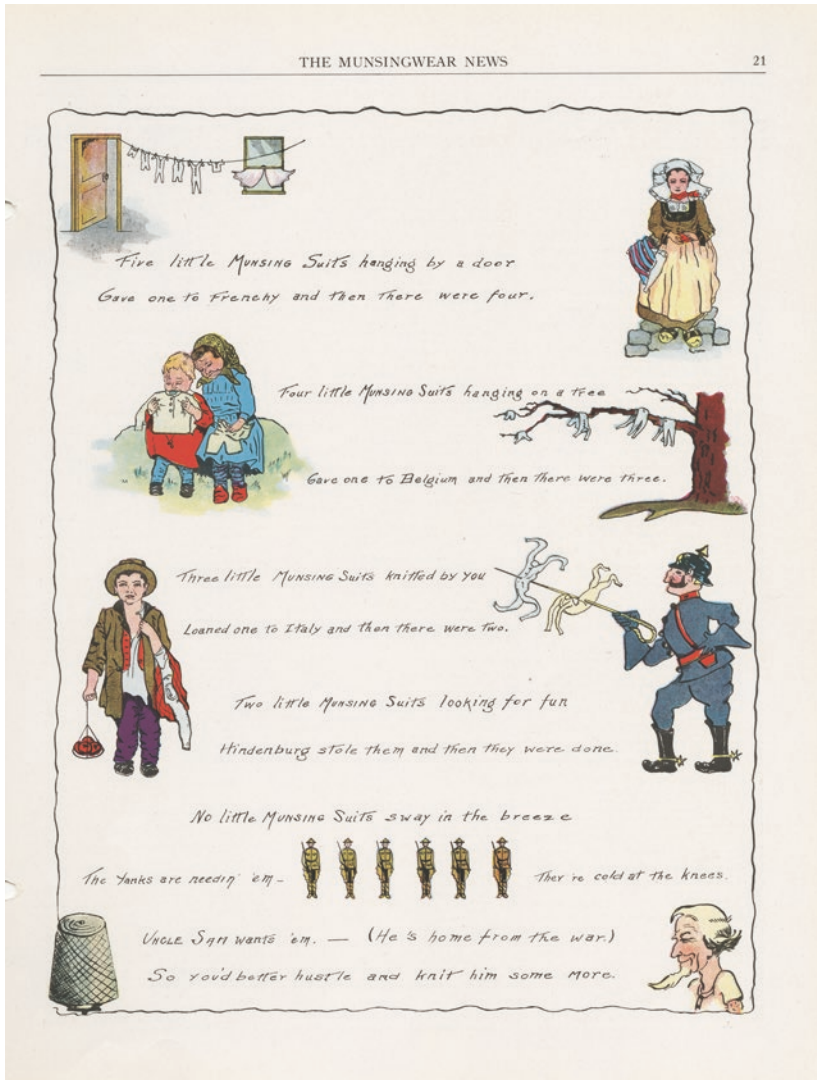 THE MUNSINGWEAR NEWS 21
Five little MUNSING Suits hanging by a door
Gave one to Frenchy and then there were four.
Four little MUNSING Suits hanging on a tree
Gave one to Belgium and then there were three.
Three little MUNSING Suits knitted by you
Loaned one to Italy and then there were two.
Two little MUNSING Suits looking for fun
Hindenburg stole them and then they were done.
No little MUNSING Suits sway in the breeze
The Yanks are needin' 'em – They're cold at the knees.
UNCLE SAM wants 'em. — (He's home from the war.)
So you'd better hustle and knit him some more.